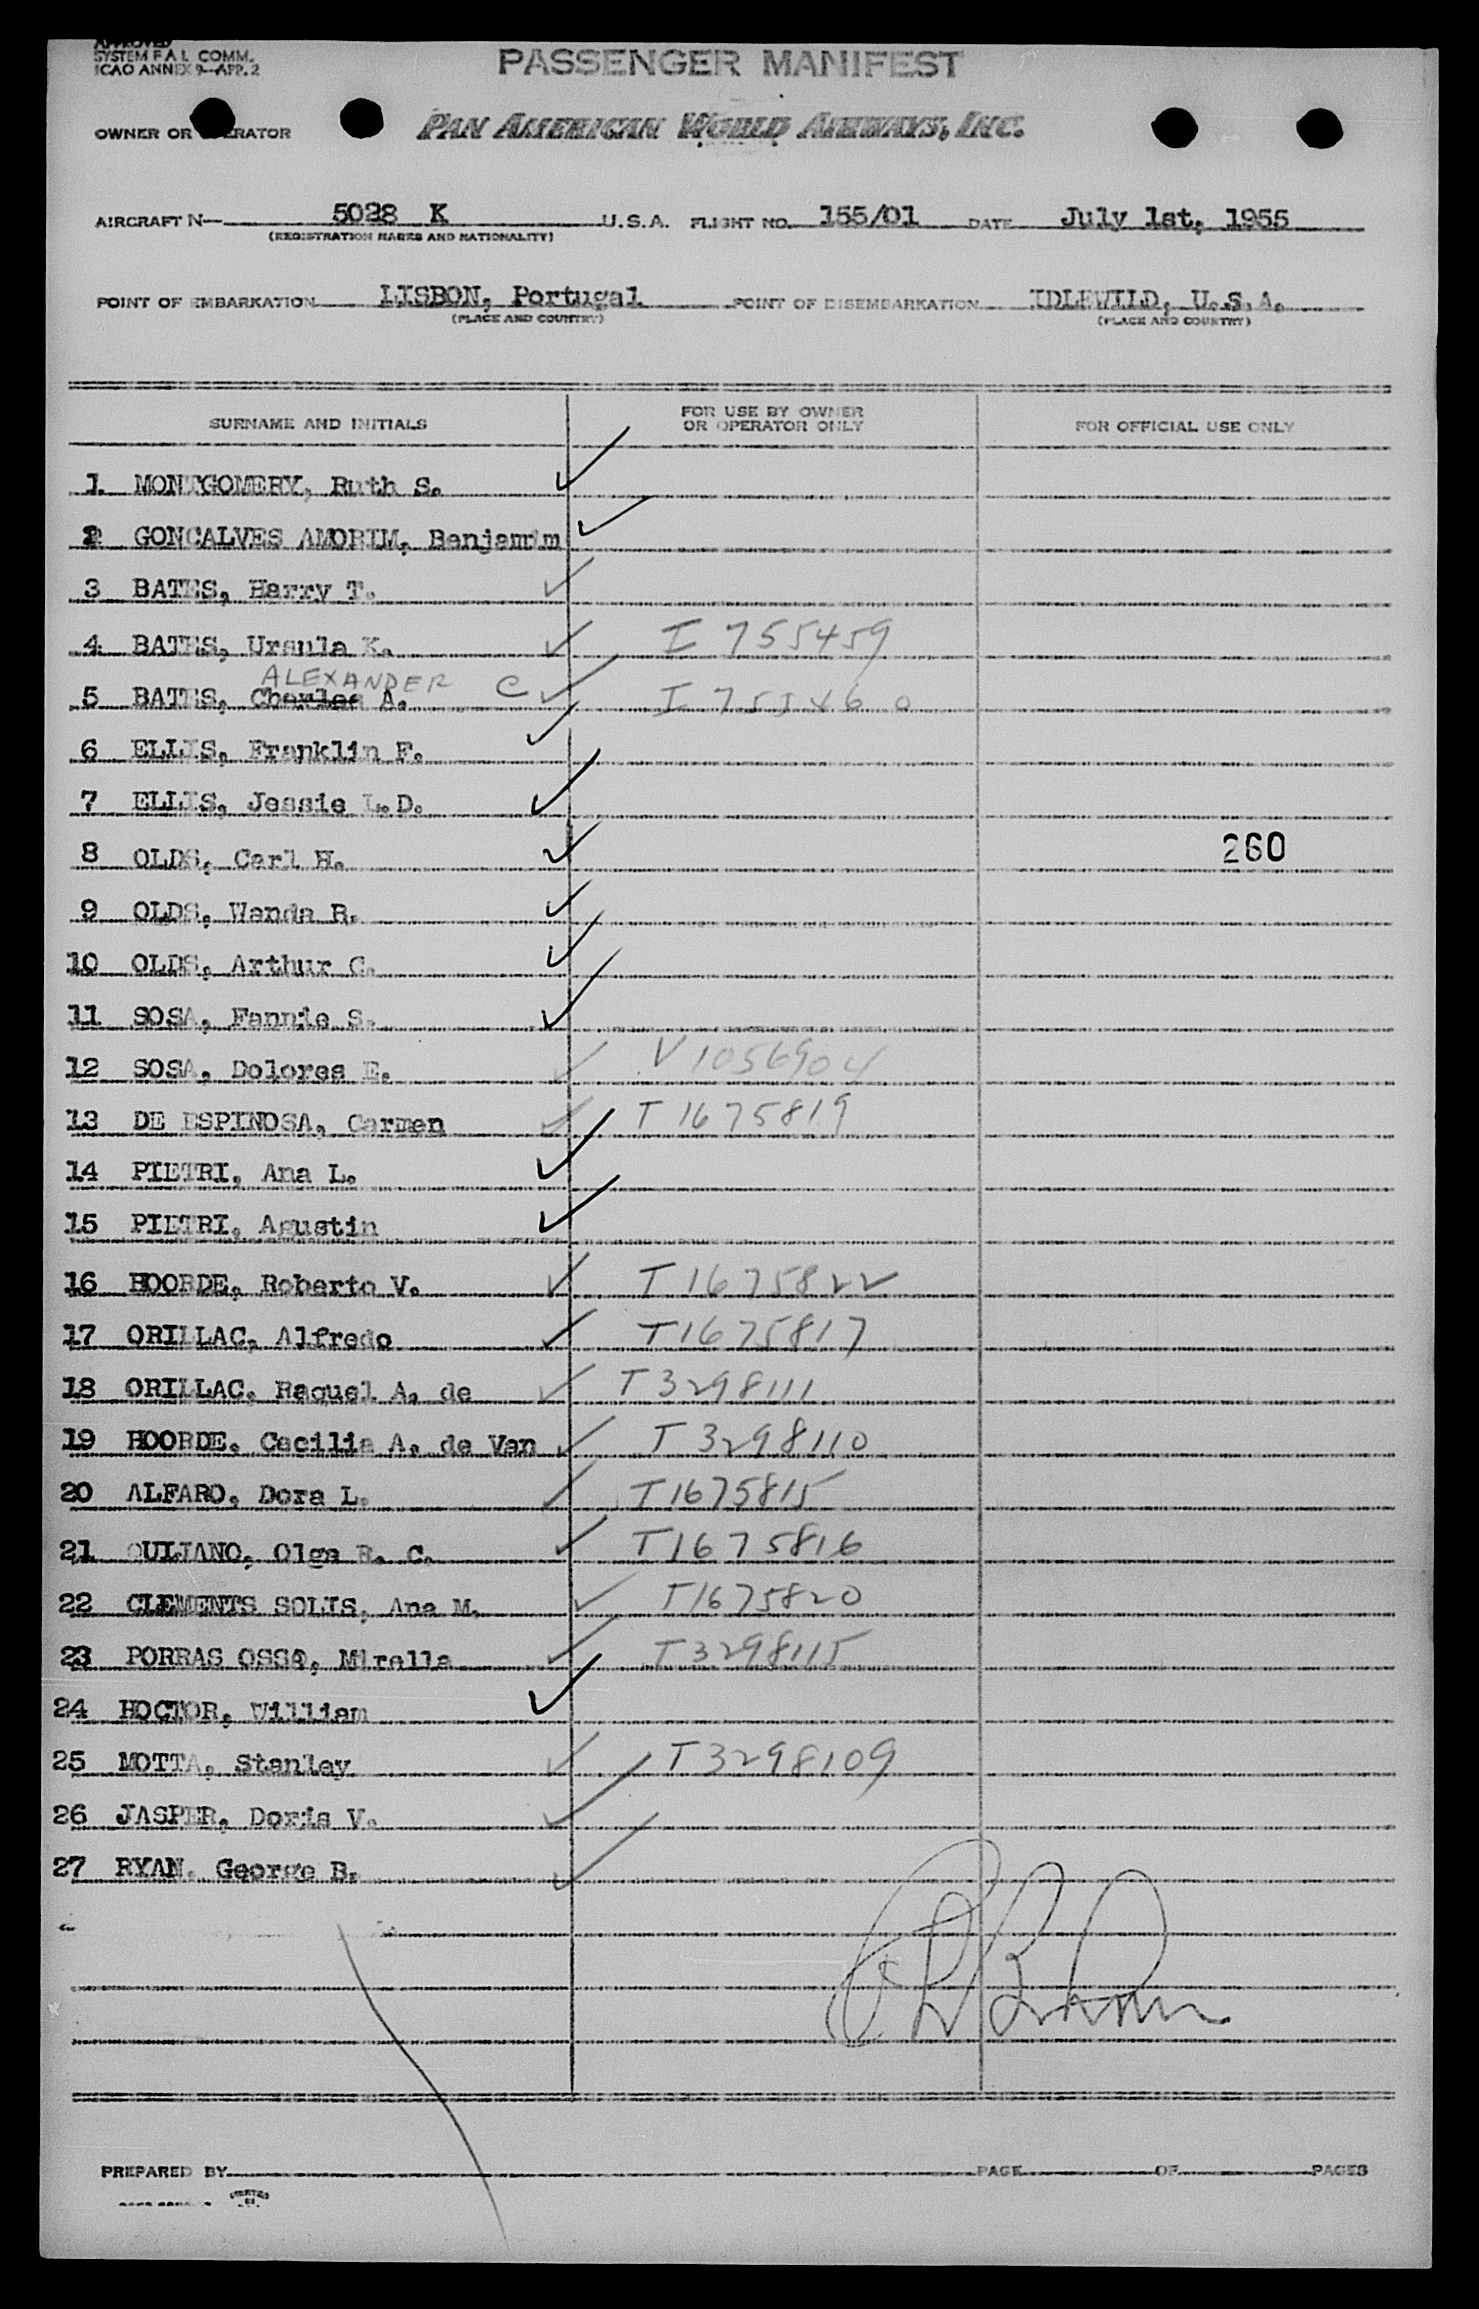 APPROVED
SYSTEM F A L COMM.
ICAO ANNEX 9-APP. 2
PASSENGER MANIFEST
OWNER OR OPERATOR PAN AMERICAN WORLD AIRWAYS, INC.
AIRCRAFT N— 5028 K U.S.A. FLIGHT NO. 155/01 DATE July 1st, 1955
(REGISTRATION MARKS AND NATIONALITY)
POINT OF EMBARKATION LISBON, Portugal POINT OF DISEMBARKATION IDLEWILD, U.S.A.
(PLACE AND COUNTRY) (PLACE AND COUNTRY)
SURNAME AND INITIALS FOR USE BY OWNER OR OPERATOR ONLY FOR OFFICIAL USE ONLY
1. MONTGOMERY, Ruth S. ✓
2 GONCALVES AMORIM, Benjamim ✓
3 BATES, Harry T. ✓
4 BATES, Ursula K. ✓ I 755459
ALEXANDER C
5 BATES, Charles A. ✓ I 755460
6 ELLIS, Franklin F. ✓
7 ELLIS, Jessie L.D. ✓
8 OLDS, Carl H. ✓ 260
9 OLDS, Wanda R. ✓
10 OLDS, Arthur C. ✓
11 SOSA, Fannie S. ✓
12 SOSA, Dolores E. ✓ V 1056904
13 DE ESPINOSA, Carmen ✓ T 1675819
14 PIETRI, Ana L. ✓
15 PIETRI, Agustin ✓
16 HOORDE, Roberto V. ✓ T 1675822
17 ORILLAC, Alfredo ✓ T1675817
18 ORILLAC, Raquel A. de ✓ T 3298111
19 HOORDE, Cecilia A. de Van ✓ T 3298110
20 ALFARO, Dora L. ✓ T1675815
21 QULIANO, Olga R. C. ✓ T1675816
22 CLEMENTS SOLIS, Ana M. ✓ T1675820
23 PORRAS OSSO, Mirella ✓ T3298115
24 HOCTOR, William ✓
25 MOTTA, Stanley ✓ T3298109
26 JASPER, Doris V. ✓
27 RYAN, George B. ✓
PREPARED BY PAGE OF PAGES